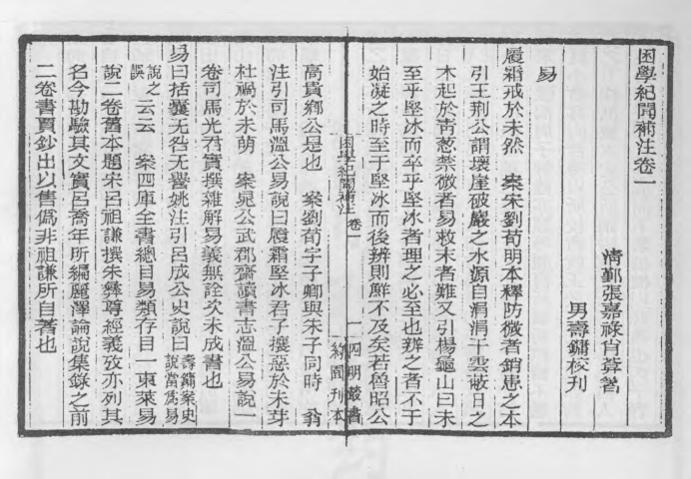 困學紀聞補注卷一
清鄞張嘉祿肖菴著
男壽鏞校刊
易
履霜戒於未然　案宋劉荀明本釋防微者銷患之本
引王荆公謂壞崖破巖之水源自涓涓干雲蔽日之
木起於青葱禁微者易救末者難又引楊龜山曰未
至乎堅冰而卒乎堅冰者理之必至也辨之者不于
始凝之時至于堅冰而後辨則鮮不及矣若魯昭公
困學紀聞補注　卷一　一　四明叢書
約園刊本
高貴鄉公是也　案劉荀字子卿與朱子同時　翁
注引司馬溫公易說曰履霜堅冰君子攘惡於未芽
杜禍於未萌　案晁公武郡齋讀書志溫公易說一
卷司馬光君實撰雜解易義無詮次未成書也
易曰括囊无咎无譽姚注引呂成公史說曰壽鏞案史說當爲易
說之誤云云　案四庫全書總目易類存目一東萊易
說二卷舊本題宋呂祖謙撰朱彝尊經義攷亦列其
名今勘驗其文實呂喬年所編麗澤論說集錄之前
二卷書賈鈔出以售僞非祖謙所自著也